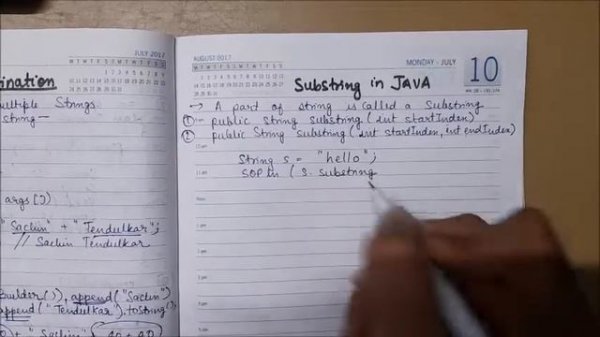 JULY 2017
ination
ultiple Strings
string —
args [])
"Sachin" + "Tendulkar";
// Sachin Tendulkar
Builder()), append("Sachin")
append("Tendulkar").toString();
AUGUST 2017
MONDAY - JULY
10
Substring in JAVA
→ A part of string is called a substring
① - public String substring (int startIndex)
② - public String substring (int startIndex, int endIndex)
String s = "hello";
SOP ln ( s. substring